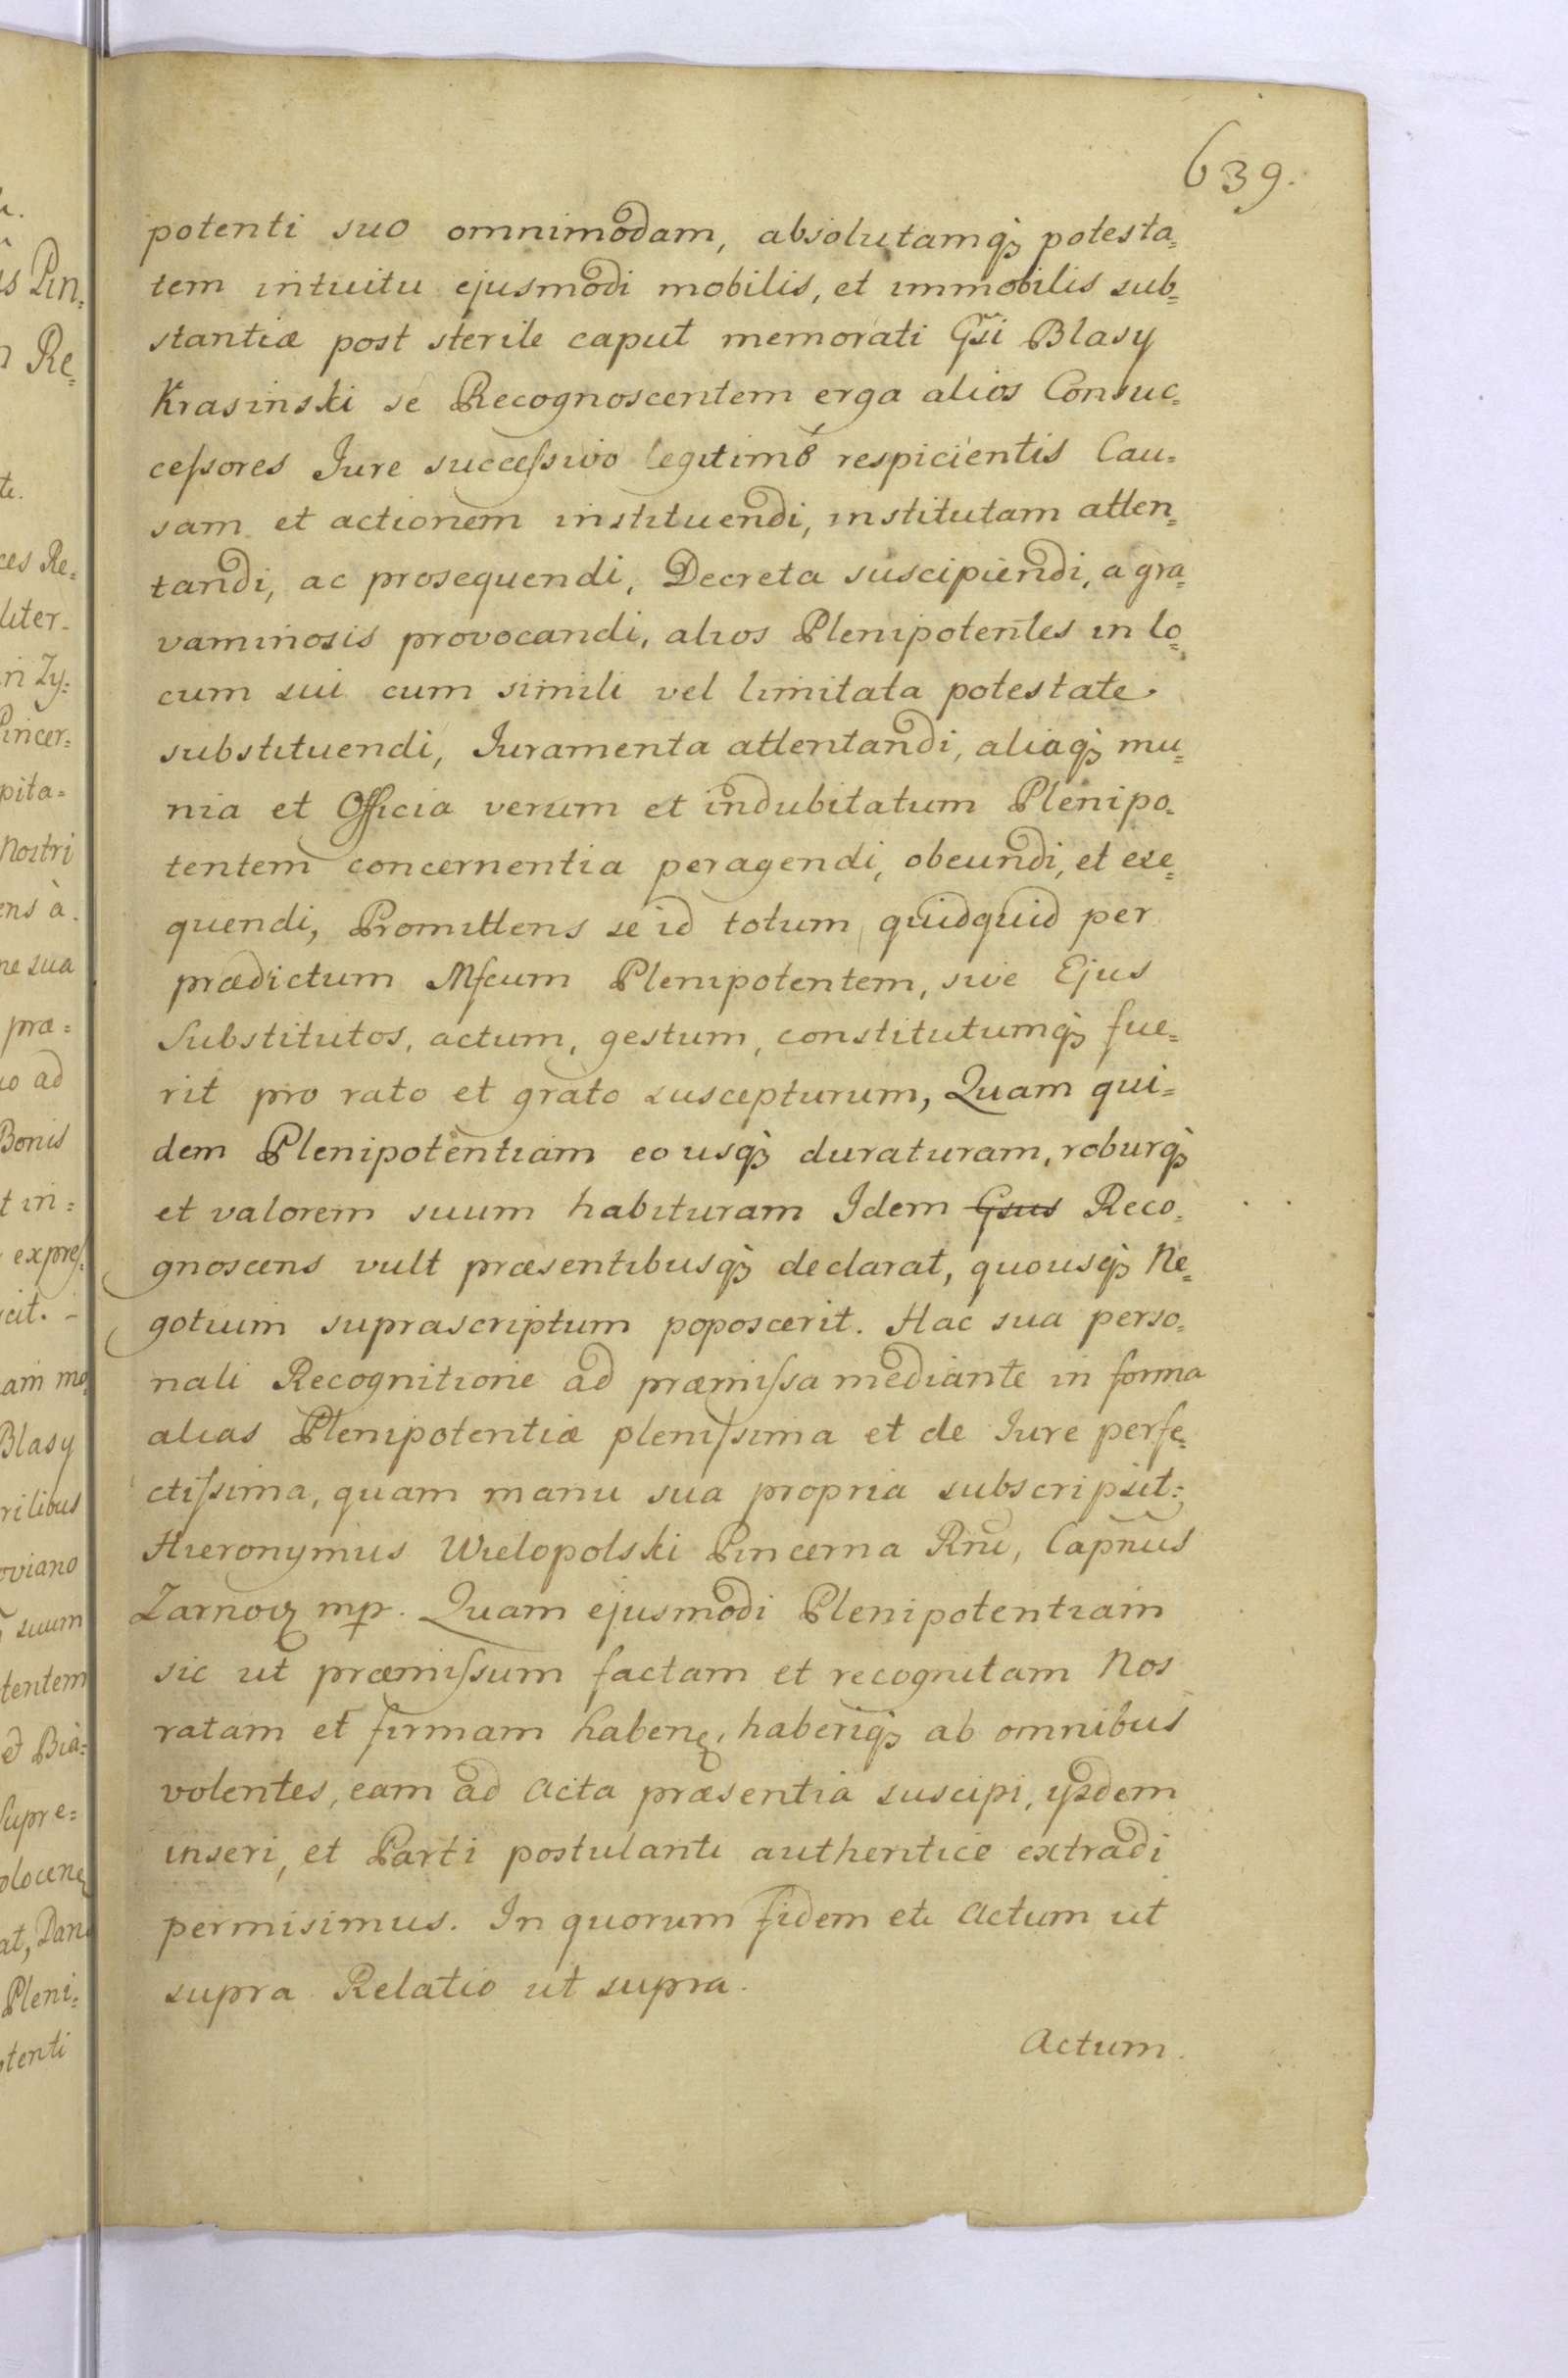 639.
potenti suo omnimodam, absolutamq₃ potesta=
tem intuitu ejusmodi mobilis, et immobilis sub=
stantiæ post sterile caput memorati Gsi Blasy
Krasinski se Recognoscentem erga alios Consuc=
ceſsores Jure succeſsivo legitimè respicientis Cau=
sam et actionem instituendi, institutam atten=
tandi, ac prosequendi, Decreta suscipiendi, a gra=
vaminosis provocandi, alios Plenipotentes in lo=
cum sui cum simili vel limitata potestate
substituendi, Juramenta attentandi, aliaq₃ mu=
nia et Officia verum et indubitatum Plenipo=
tentem concernentia peragendi, obeundi, et exe=
quendi, Promittens se id totum quidquid per
prædictum Mfcum Plenipotentem, sive Ejus
Substitutos, actum, gestum, constitutumq₃ fue=
rit pro rato et grato suscepturum, Quam qui=
dem Plenipotentiam eo usq₃ duraturam, roburq₃
et valorem suum habituram Idem Gsus Reco=
gnoscens vult præsentibusq₃ declarat, quousq₃ Ne=
gotium suprascriptum poposcerit. Hac sua perso=
nali Recognitione ad præmiſsa mediante in forma
alias Plenipotentiæ pleniſsima et de Jure perfe=
ctiſsima, quam manu sua propria subscripsit:
Hieronymus Wielopolski Pincerna Rni, Capnus
Zarnov: mp. Quam ejusmodi Plenipotentiam
sic ut præmiſsum factam et recognitam Nos
ratam et firmam haben: haberiq₃ ab omnibus
volentes, eam ad Acta præsentia suscipi, ysdem
inseri, et Parti postulanti authentice extradi
permisimus. In quorum fidem etc Actum ut
supra Relatio ut supra.
Actum.